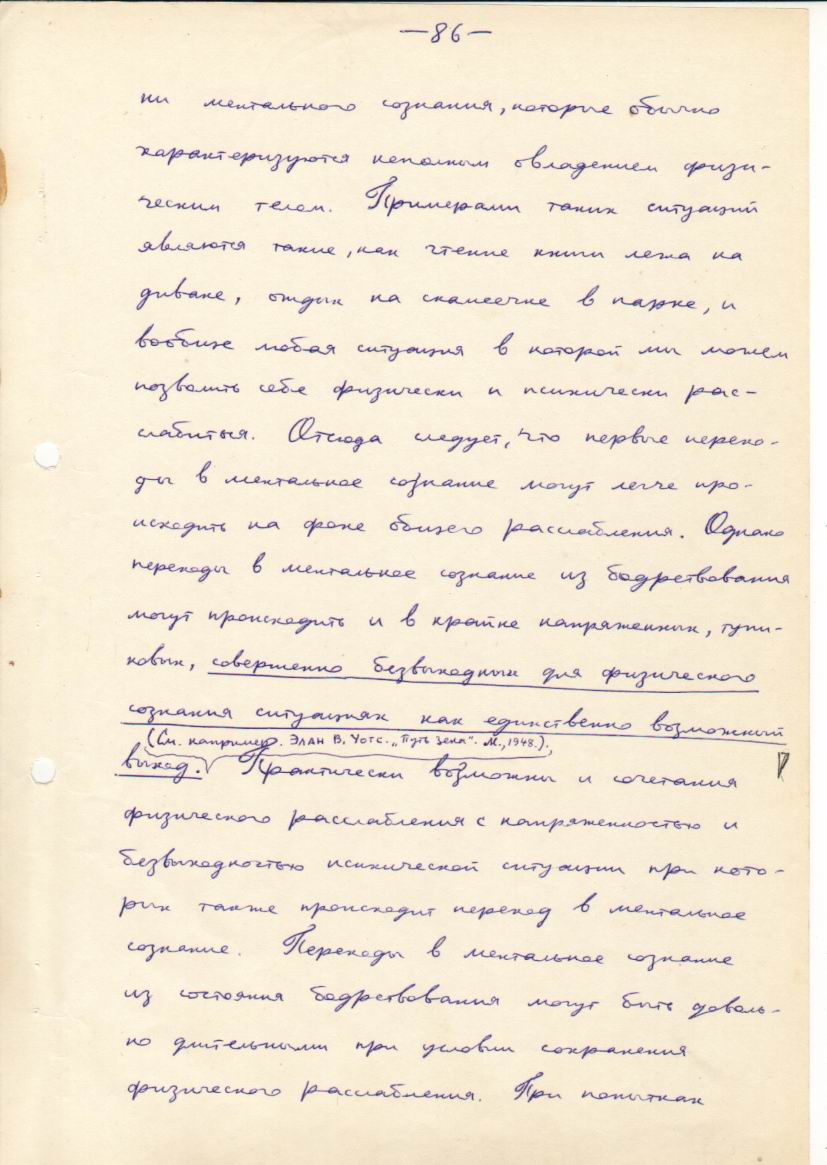 —86—
ни ментального сознания, которые обычно
характеризуются неполным овладением физи-
ческим телом. Примерами таких ситуаций
являются такие, как чтение книги лежа на
диване, отдых на скамеечке в парке, и
вообще любая ситуация в которой мы можем
позволить себе физически и психически рас-
слабиться. Отсюда следует, что первые перехо-
ды в ментальное сознание могут легче про-
исходить на фоне общего расслабления. Однако
переходы в ментальное сознание из бодрствования
могут происходить и в крайне напряженных, тупи-
ковых, совершенно безвыходных для физического
сознания ситуациях как единственно возможный
(См. например. Элан В. Уотс. „Путь Зена". М., 1948.).
выход. Практически возможны и сочетания
физического расслабления с напряженностью и
безвыходностью психической ситуации при кото-
рых также происходит переход в ментальное
сознание. Переходы в ментальное сознание
из состояния бодрствования могут быть доволь-
но длительными при условии сохранения
физического расслабления. При попытках